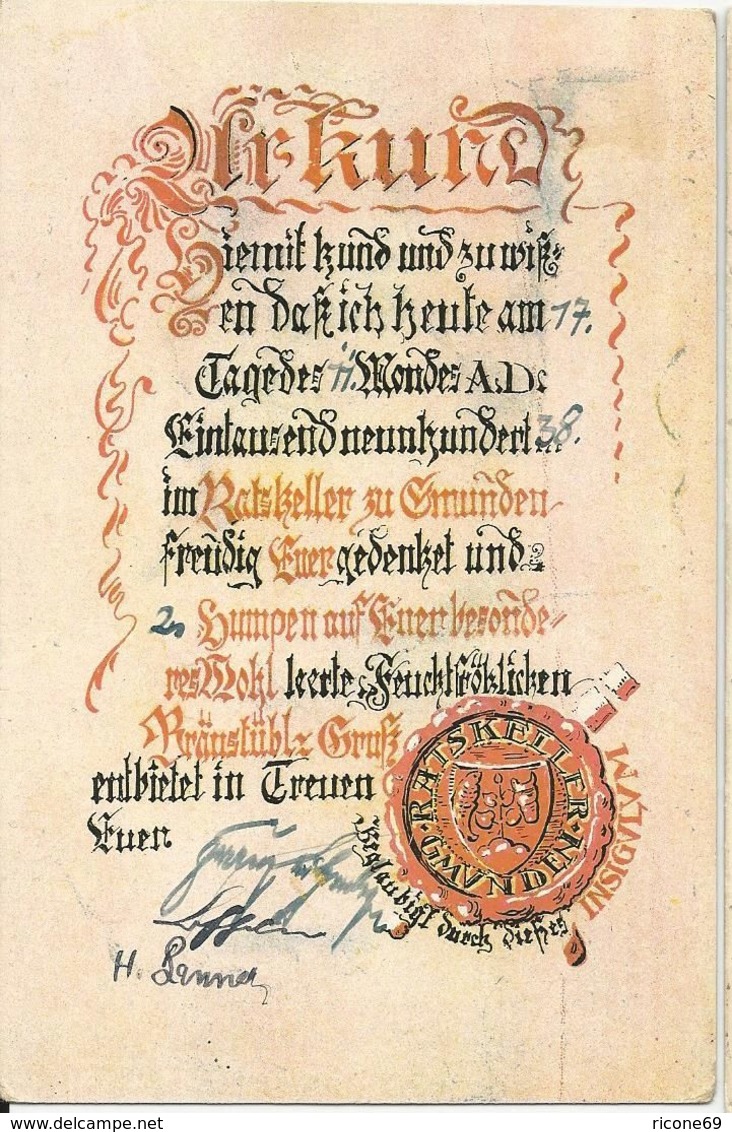 Urkund
Hiemit kund und zu wiß-
en daß ich heute am 17.
Tage des 11. Mondes A.D.
Eintausendneunhundert 38.
im Ratskeller zu Gmunden
freudig Euer gedenket und
2 Humpen auf Euer besonde-
res Wohl leerte. Feuchtfröhlichen
Bräustübl-Gruß
entbietet in Treuen
Euer
H.
RATSKELLER · GMVNDEN ·
Beglaubigt durch dießes
INSIGVLVM
delcampe.net
ricone69